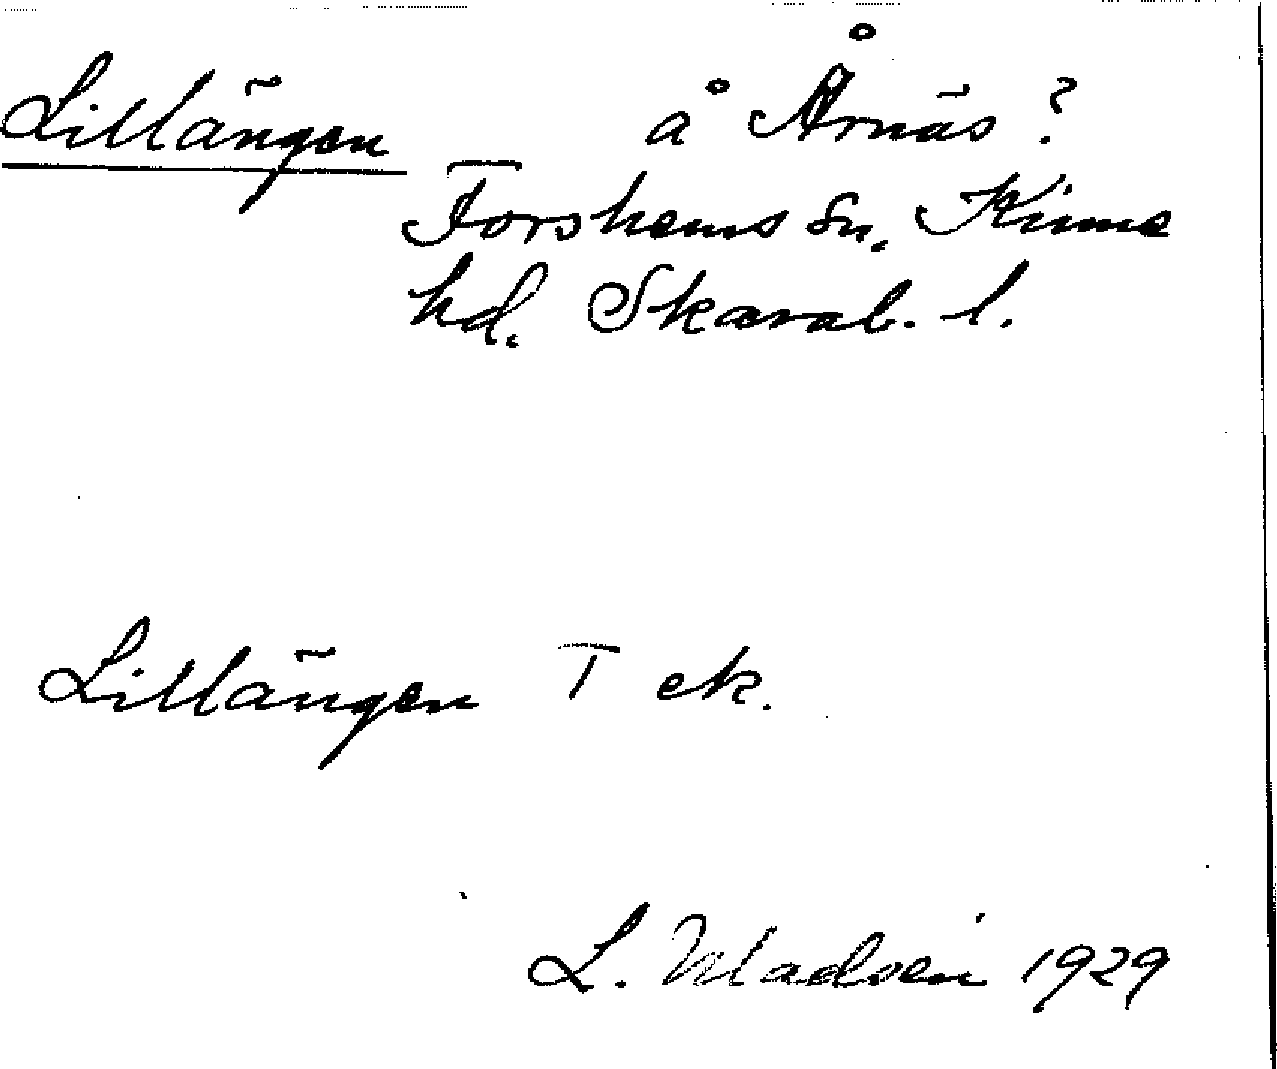 Lillängen å Årnäs?
Forshems Sn, Kinne
hd. Skarab. l.
Lillängen T ek.
L. Madsén 1929